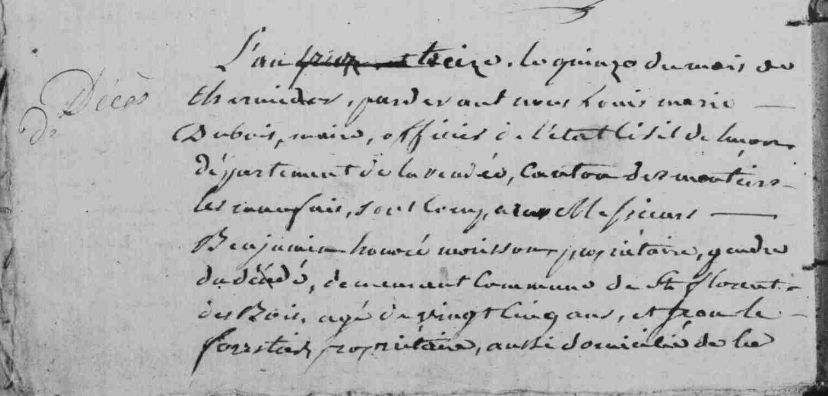 Décès
de
L'an treize, le quinze du mois de
thermidor, pardevant nous Louis marie
Dubois, maire, officier de l'état Civil de
département de la vendée, Canton des moutiers
les maufais, sont Comp, Messieurs
Benjamin honoré moisson propriétaire, gendre
du décédé, demeurant Commune de St florent
des Bois, agé de vingt Cinq ans, et
forestier propriétaire, aussi domicilié de la